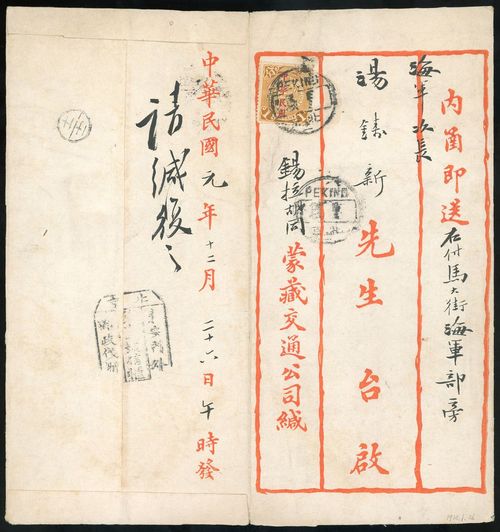 内函即送石付馬大街海軍部旁
海軍次長
湯鑄新先生台啟
PEKING
PEKING
錫拉胡同蒙藏交通公司緘
中華民國元年十二月二十六日午時發
請緘復